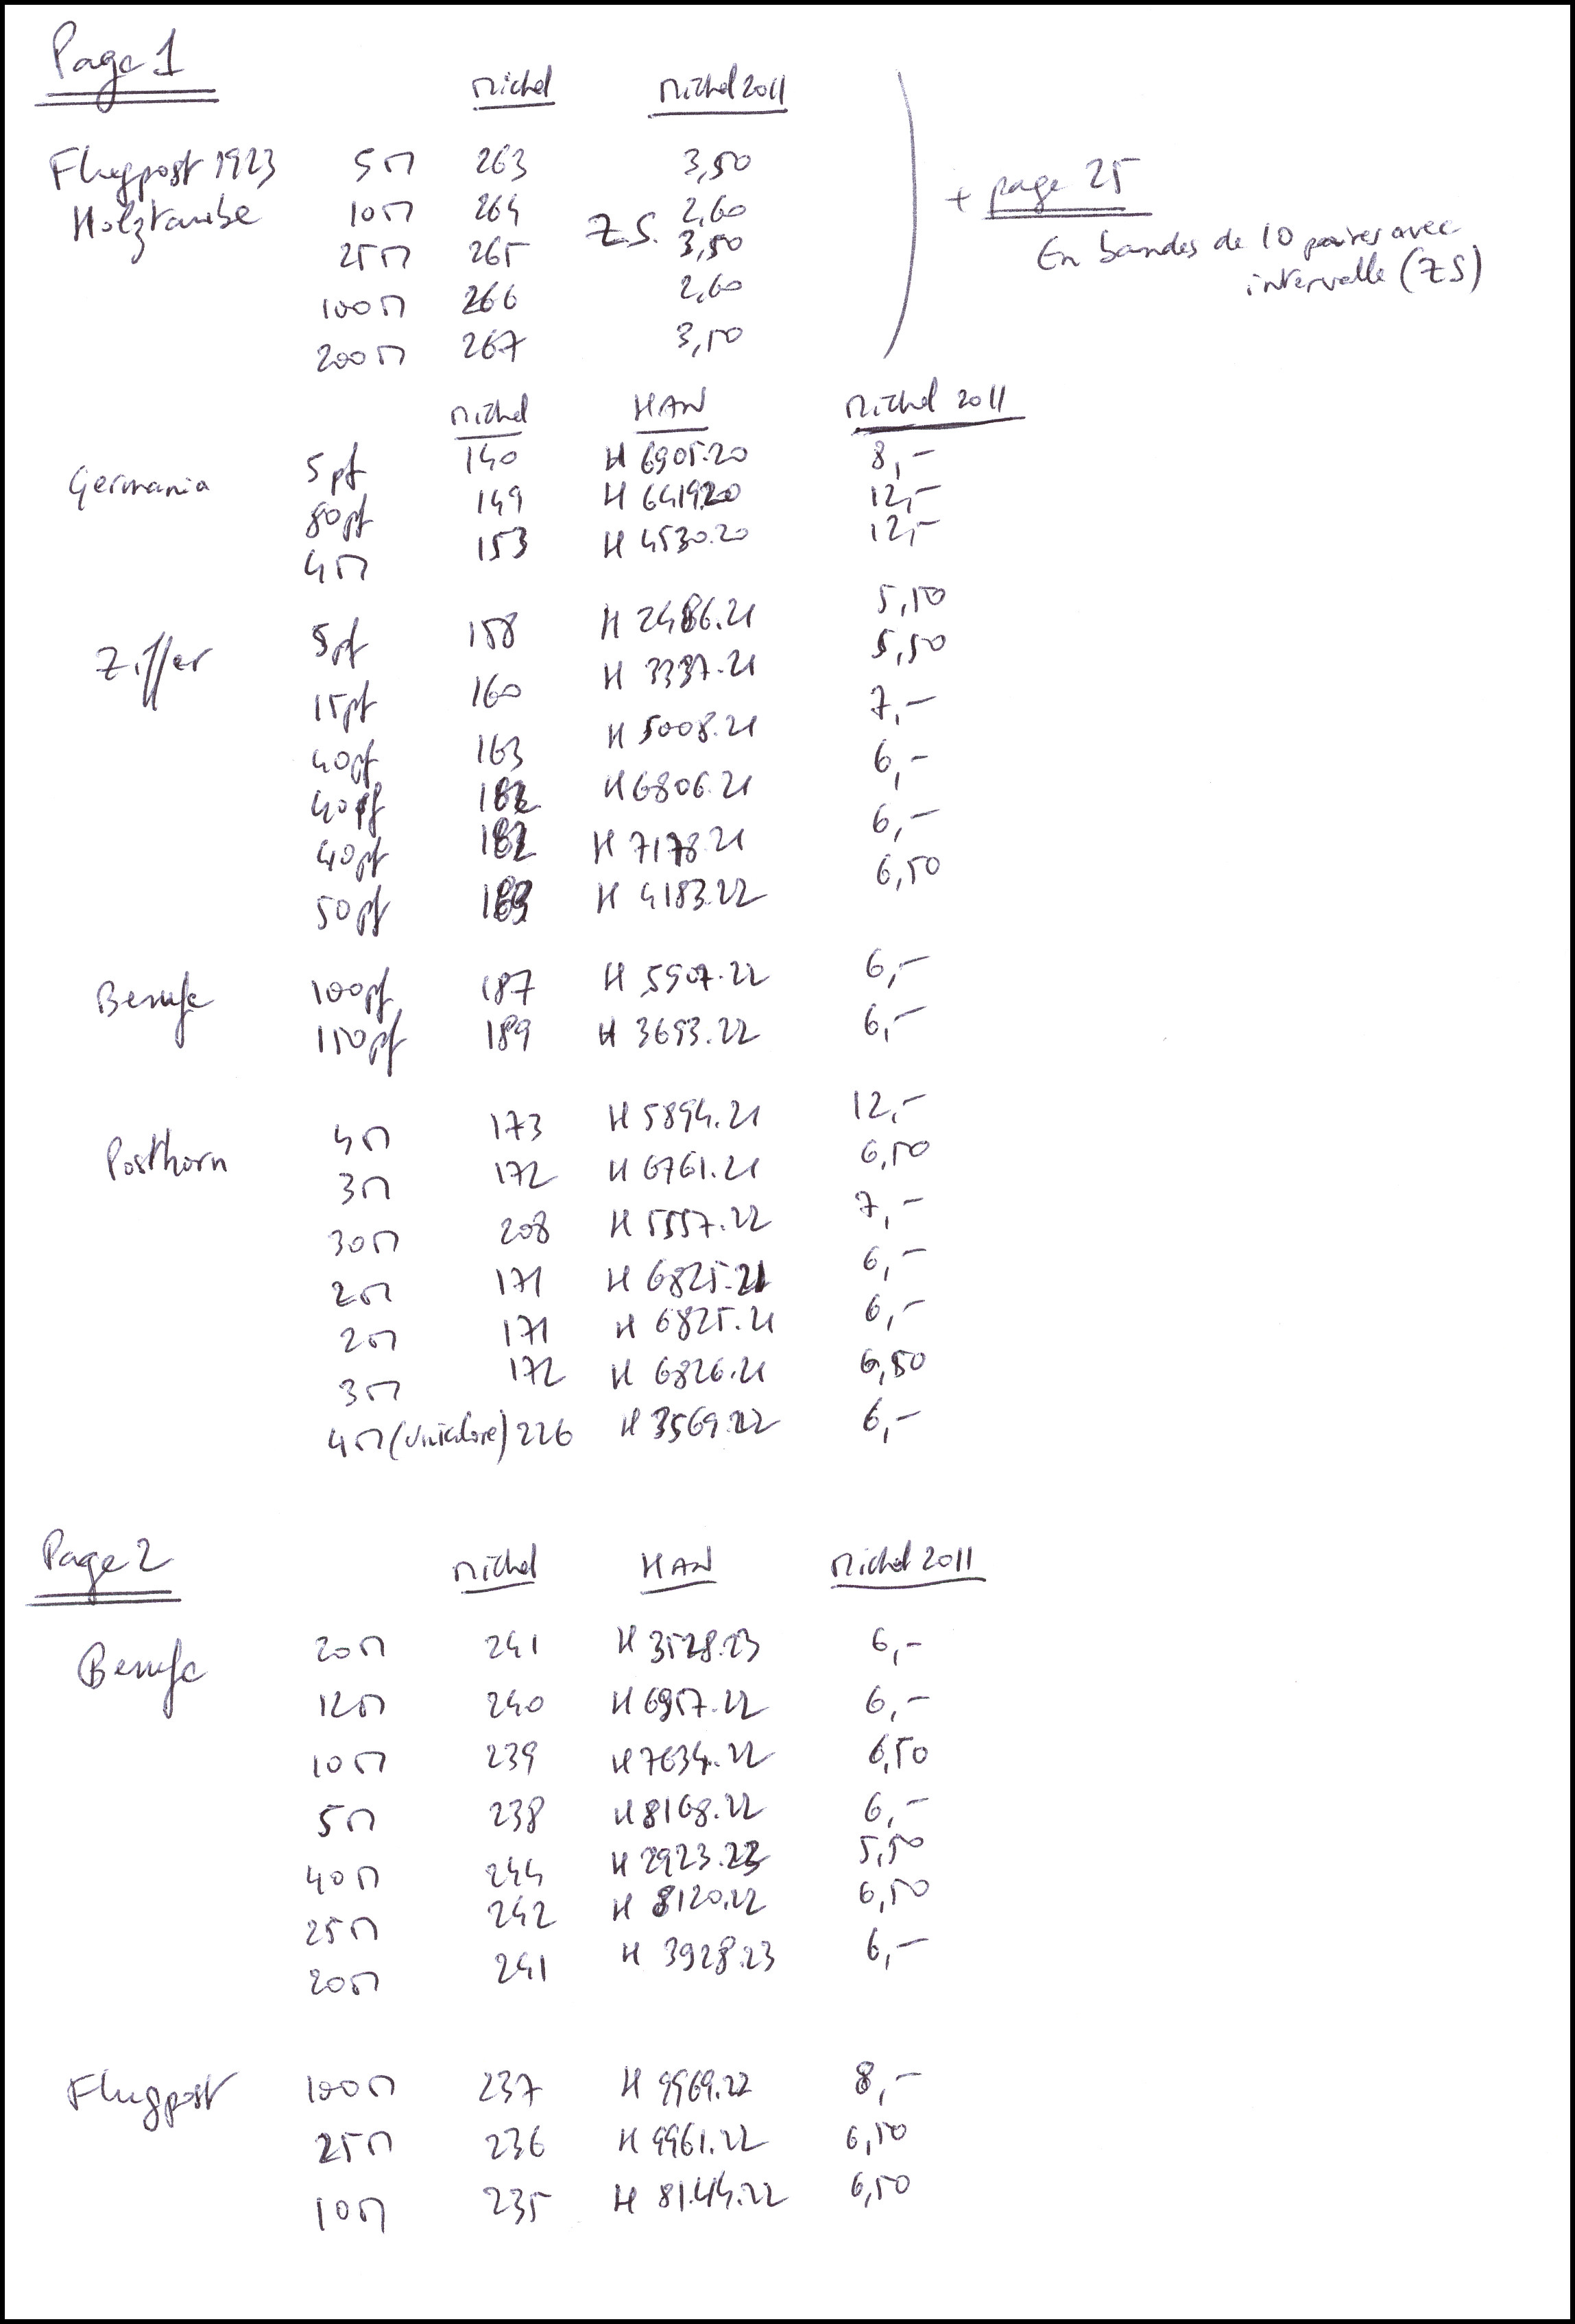 Page 1
Michel Michel 2011
Flugpost 1923 5M 263 3,50
Holztaube 10M 264 Z.S. 2,60
25M 265 3,50
100M 266 2,60
200M 267 3,50
+ page 25
En bandes de 10 paires avec
intervalle (ZS)
Michel HAN Michel 2011
Germania 5pf 140 H 6905.20 8,-
80pf 149 H 6419.20 12,-
4M 153 H 4530.20 12,-
Ziffer 5pf 158 H 2486.21 5,50
15pf 160 H 3337.21 5,50
40pf 163 H 5008.21 7,-
40pf 182 H 6806.21 6,-
40pf 182 H 7178.21 6,-
50pf 183 H 4183.22 6,50
Berufe 100pf 187 H 5907.22 6,-
150pf 189 H 3653.22 6,-
Posthorn 4M 173 H 5894.21 12,-
3M 172 H 6761.21 6,50
30M 208 H 5557.22 7,-
2M 171 H 6825.21 6,-
2M 171 H 6825.21 6,-
3M 172 H 6826.21 6,50
4M (unicolore) 226 H 3569.22 6,-
Page 2
Michel HAN Michel 2011
Berufe 20M 241 H 3528.23 6,-
12M 240 H 6957.22 6,-
10M 239 H 7634.22 6,50
5M 238 H 8168.22 6,-
40M 244 H 2923.23 5,50
25M 242 H 8120.22 6,50
20M 241 H 3928.23 6,-
Flugpost 100M 237 H 9969.22 8,-
25M 236 H 9961.22 6,50
10M 235 H 8144.22 6,50